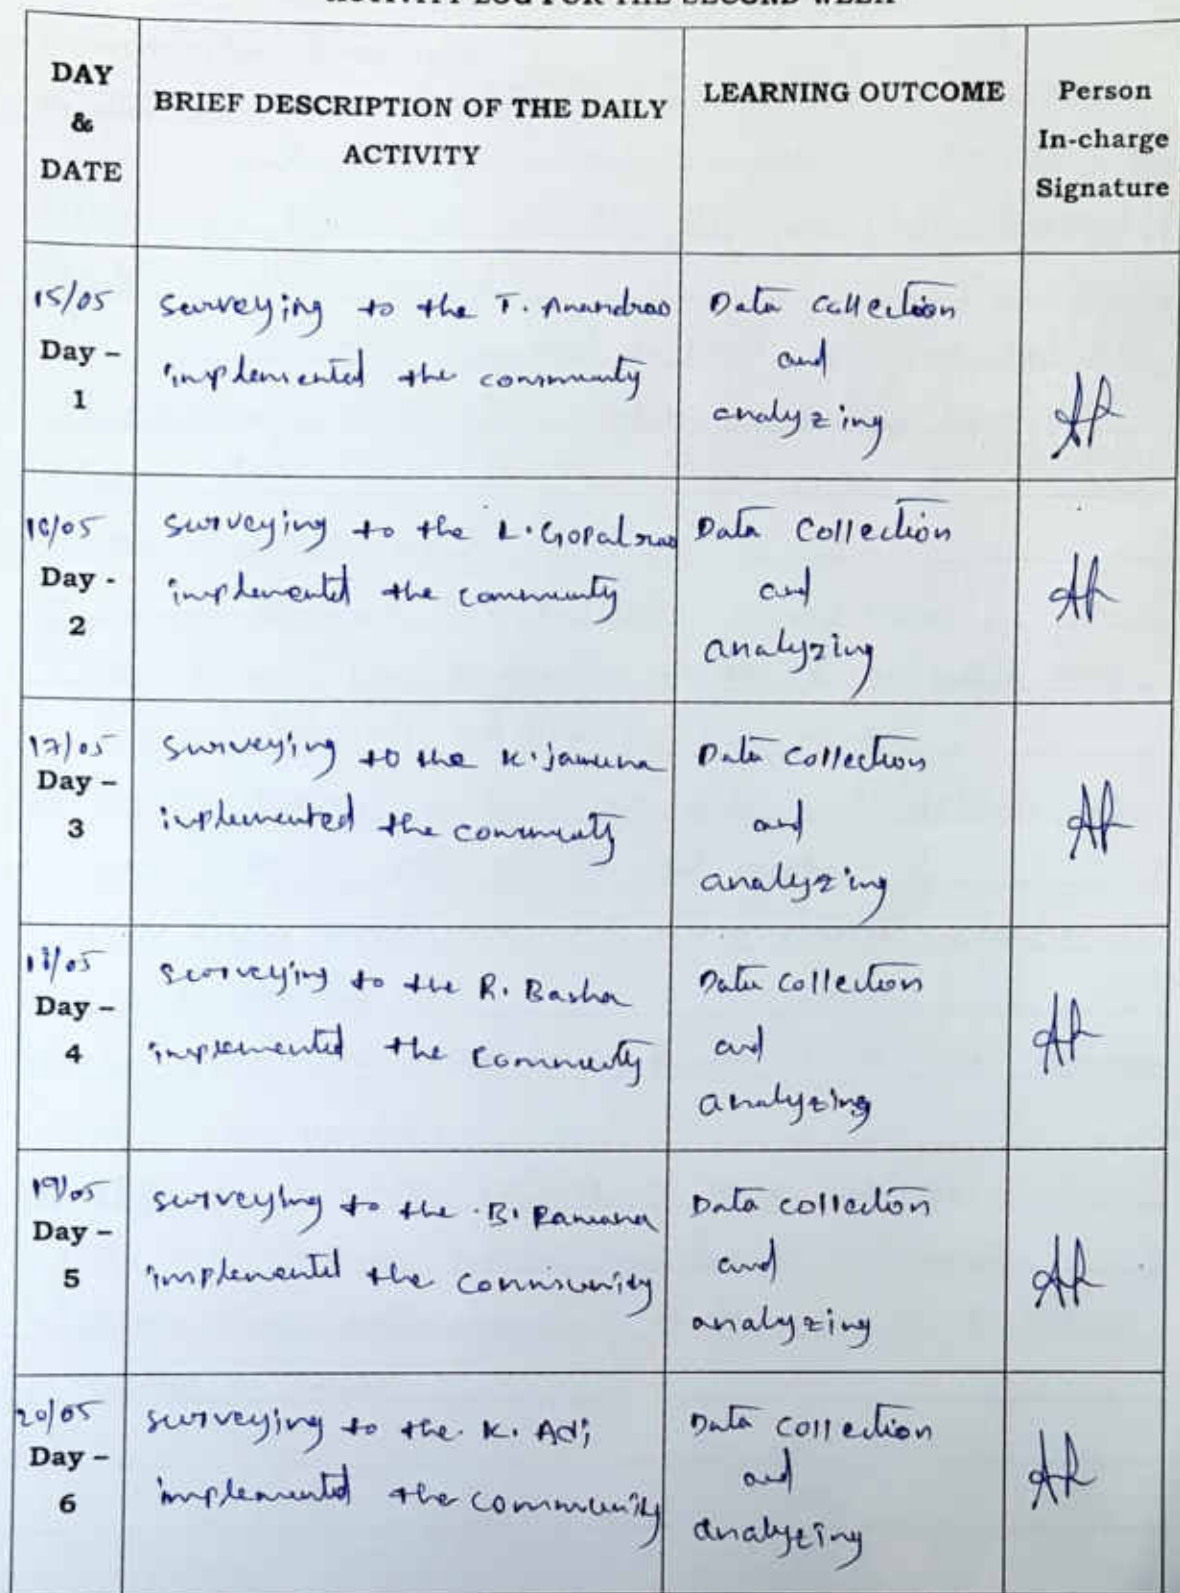 ACTIVITY LOG FOR THE SECOND WEEK
DAY
&
DATE
BRIEF DESCRIPTION OF THE DAILY
ACTIVITY
LEARNING OUTCOME
Person
In-charge
Signature
15/05
Day –
1
Surveying to the T. Anandrao
implemented the community
Data collection
and
analyzing
16/05
Day -
2
Surveying to the L. Gopalrao
implemented the community
Data Collection
and
analyzing
17/05
Day –
3
Surveying to the K. jamuna
implemented the community
Data collection
and
analyzing
18/05
Day –
4
Surveying to the R. Basha
implemented the community
Data collection
and
analyzing
19/05
Day –
5
surveying to the B. Ramana
implemented the community
Data collection
and
analyzing
20/05
Day –
6
surveying to the K. Adi
implemented the community
Data collection
and
analyzing